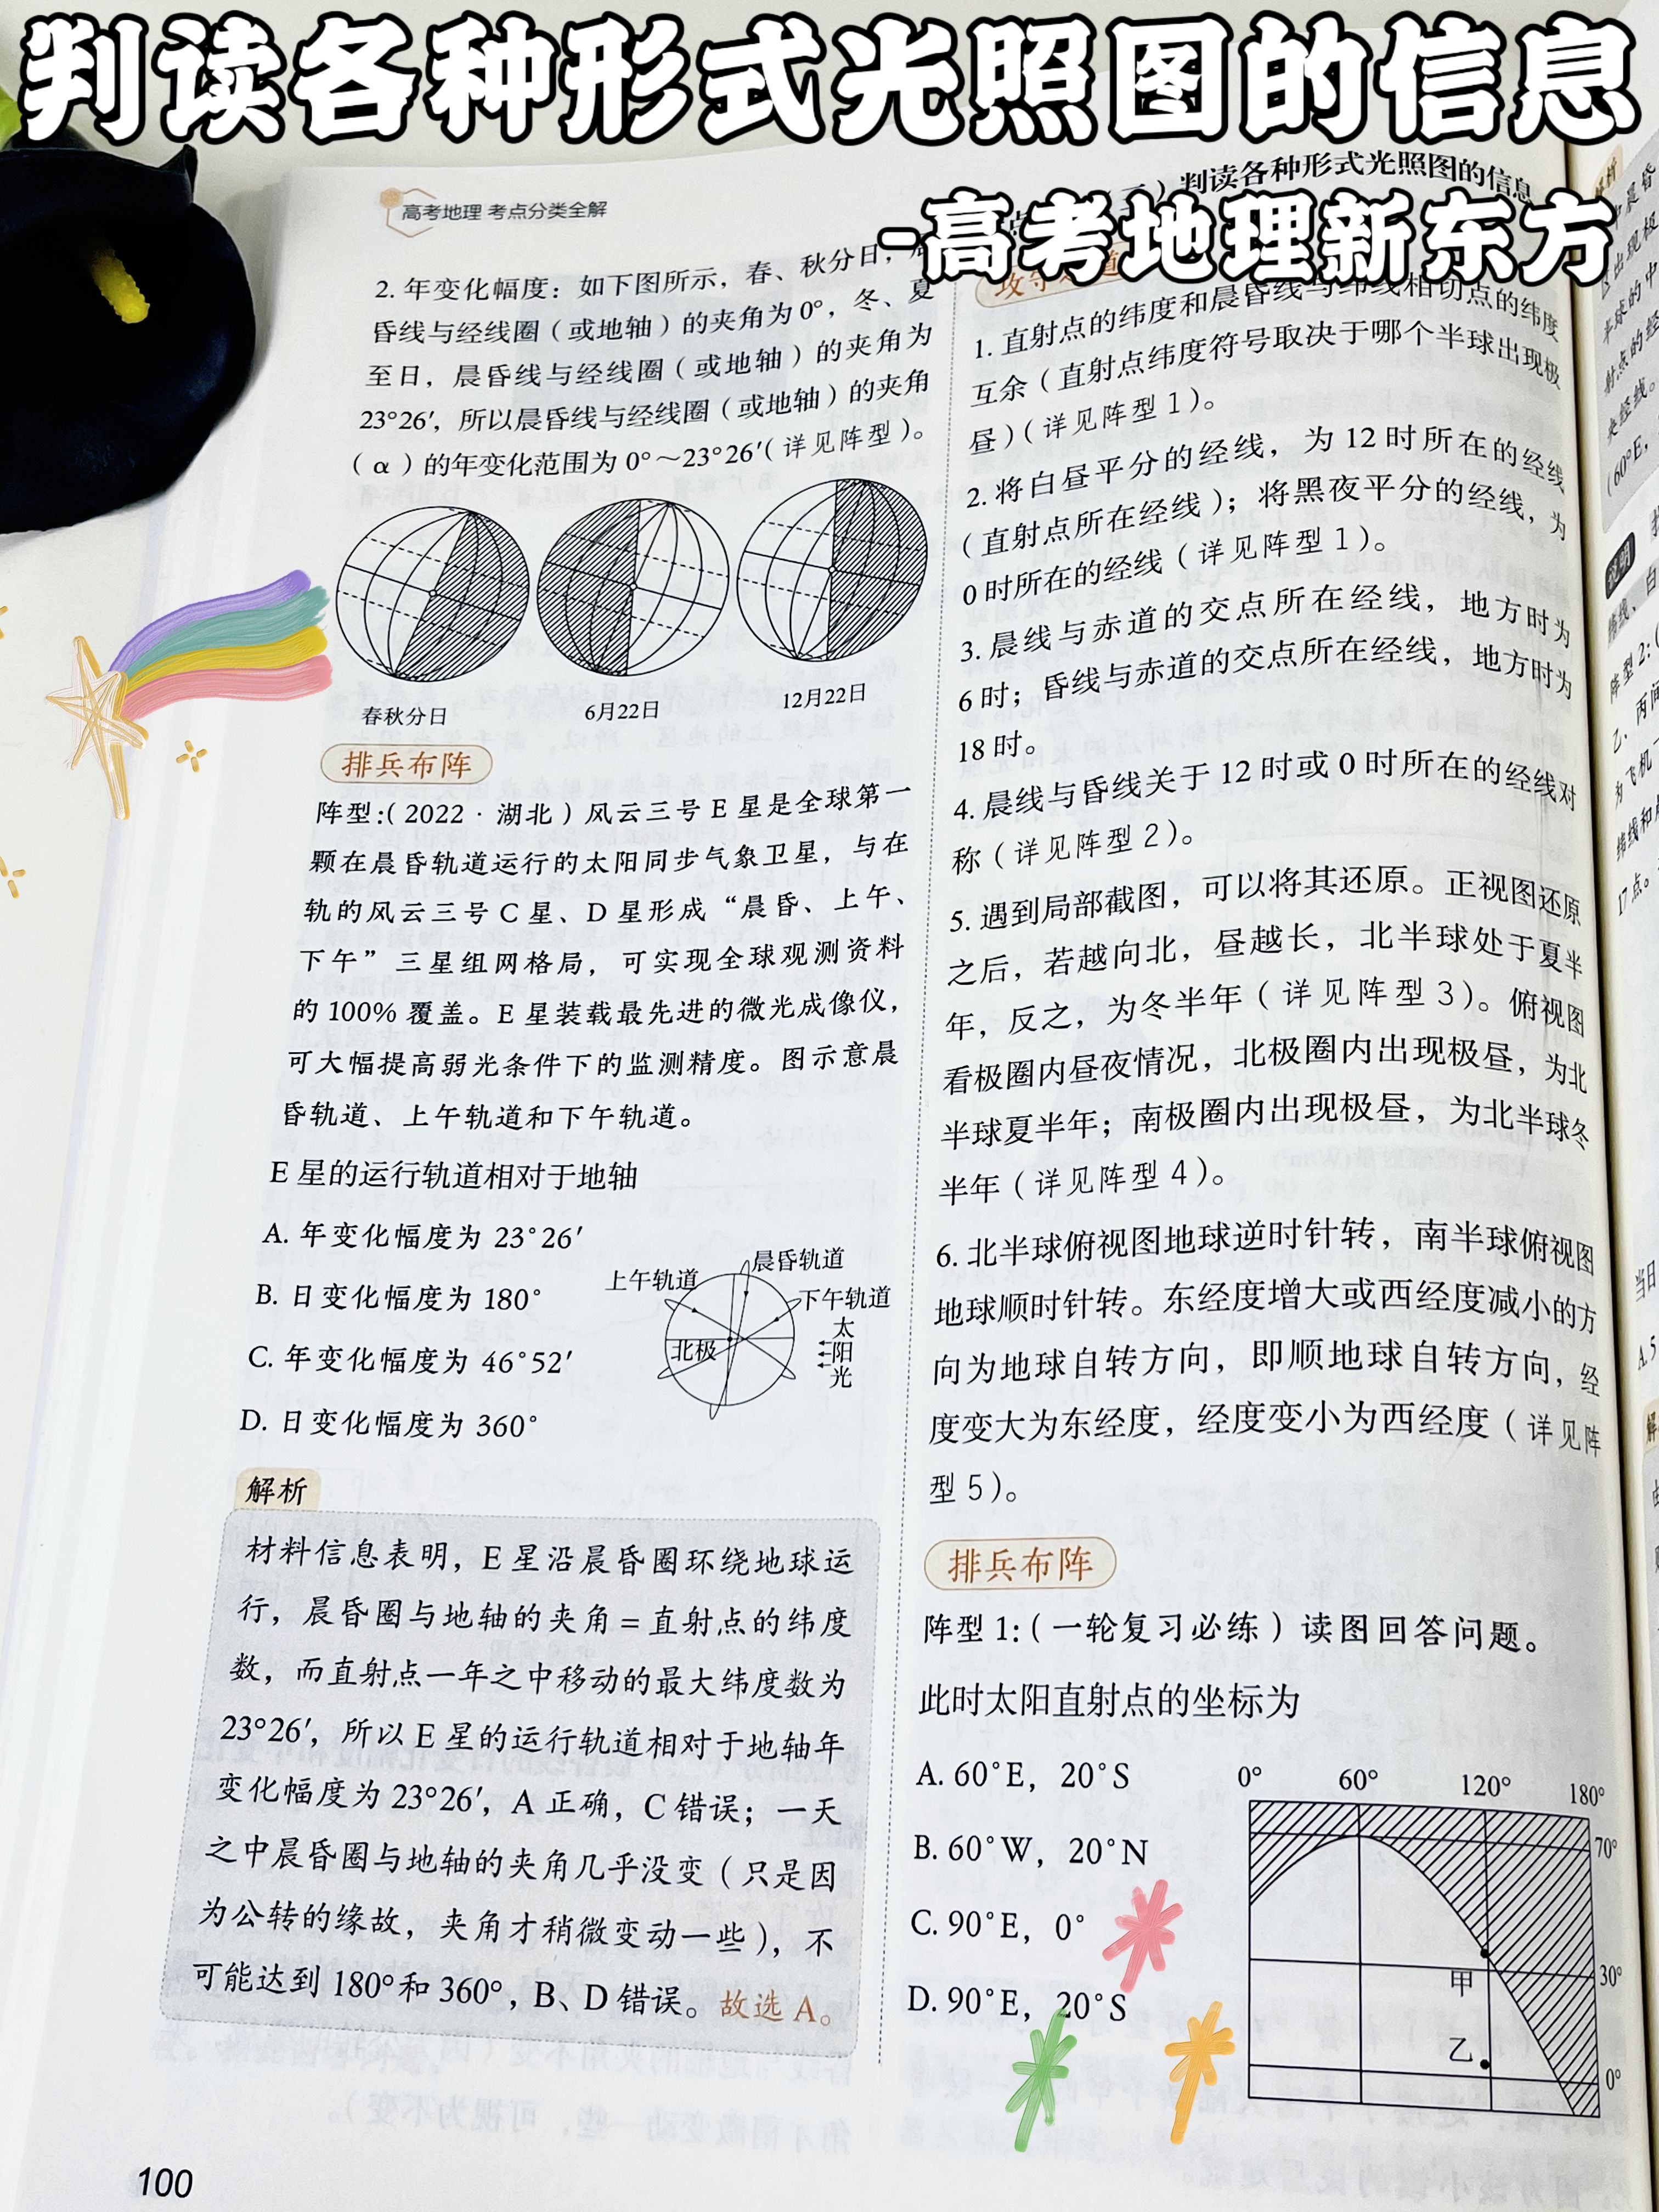 判读各种形式光照图的信息
-高考地理新东方
高考地理 考点分类全解
2. 年变化幅度：如下图所示，春、秋分日，
昏线与经线圈（或地轴）的夹角为0°，冬、夏
至日，晨昏线与经线圈（或地轴）的夹角为
23°26′，所以晨昏线与经线圈（或地轴）的夹角
（α）的年变化范围为0°～23°26′（详见阵型）。
春秋分日
6月22日
12月22日
排兵布阵
阵型:（2022·湖北）风云三号E星是全球第一
颗在晨昏轨道运行的太阳同步气象卫星，与在
轨的风云三号C星、D星形成“晨昏、上午、
下午”三星组网格局，可实现全球观测资料
的100%覆盖。E星装载最先进的微光成像仪，
可大幅提高弱光条件下的监测精度。图示意晨
昏轨道、上午轨道和下午轨道。
E星的运行轨道相对于地轴
A. 年变化幅度为23°26′
B. 日变化幅度为180°
C. 年变化幅度为46°52′
D. 日变化幅度为360°
上午轨道
晨昏轨道
下午轨道
北极
太阳光
解析
材料信息表明，E星沿晨昏圈环绕地球运
行，晨昏圈与地轴的夹角=直射点的纬度
数，而直射点一年之中移动的最大纬度数为
23°26′，所以E星的运行轨道相对于地轴年
变化幅度为23°26′，A正确，C错误；一天
之中晨昏圈与地轴的夹角几乎没变（只是因
为公转的缘故，夹角才稍微变动一些），不
可能达到180°和360°，B、D错误。故选A。
100
）判读各种形式光照图的信息
1. 直射点的纬度和晨昏线与纬线相切点的纬度
互余（直射点纬度符号取决于哪个半球出现极
昼）（详见阵型1）。
2. 将白昼平分的经线，为12时所在的经线
（直射点所在经线）；将黑夜平分的经线，为
0时所在的经线（详见阵型1）。
3. 晨线与赤道的交点所在经线，地方时为
6时；昏线与赤道的交点所在经线，地方时为
18时。
4. 晨线与昏线关于12时或0时所在的经线对
称（详见阵型2）。
5. 遇到局部截图，可以将其还原。正视图还原
之后，若越向北，昼越长，北半球处于夏半
年，反之，为冬半年（详见阵型3）。俯视图
看极圈内昼夜情况，北极圈内出现极昼，为北
半球夏半年；南极圈内出现极昼，为北半球冬
半年（详见阵型4）。
6. 北半球俯视图地球逆时针转，南半球俯视图
地球顺时针转。东经度增大或西经度减小的方
向为地球自转方向，即顺地球自转方向，经
度变大为东经度，经度变小为西经度（详见阵
型5）。
排兵布阵
阵型1:（一轮复习必练）读图回答问题。
此时太阳直射点的坐标为
A. 60°E，20°S
B. 60°W，20°N
C. 90°E，0°
D. 90°E，20°S
0° 60° 120° 180°
70°
30°
0°
甲
乙